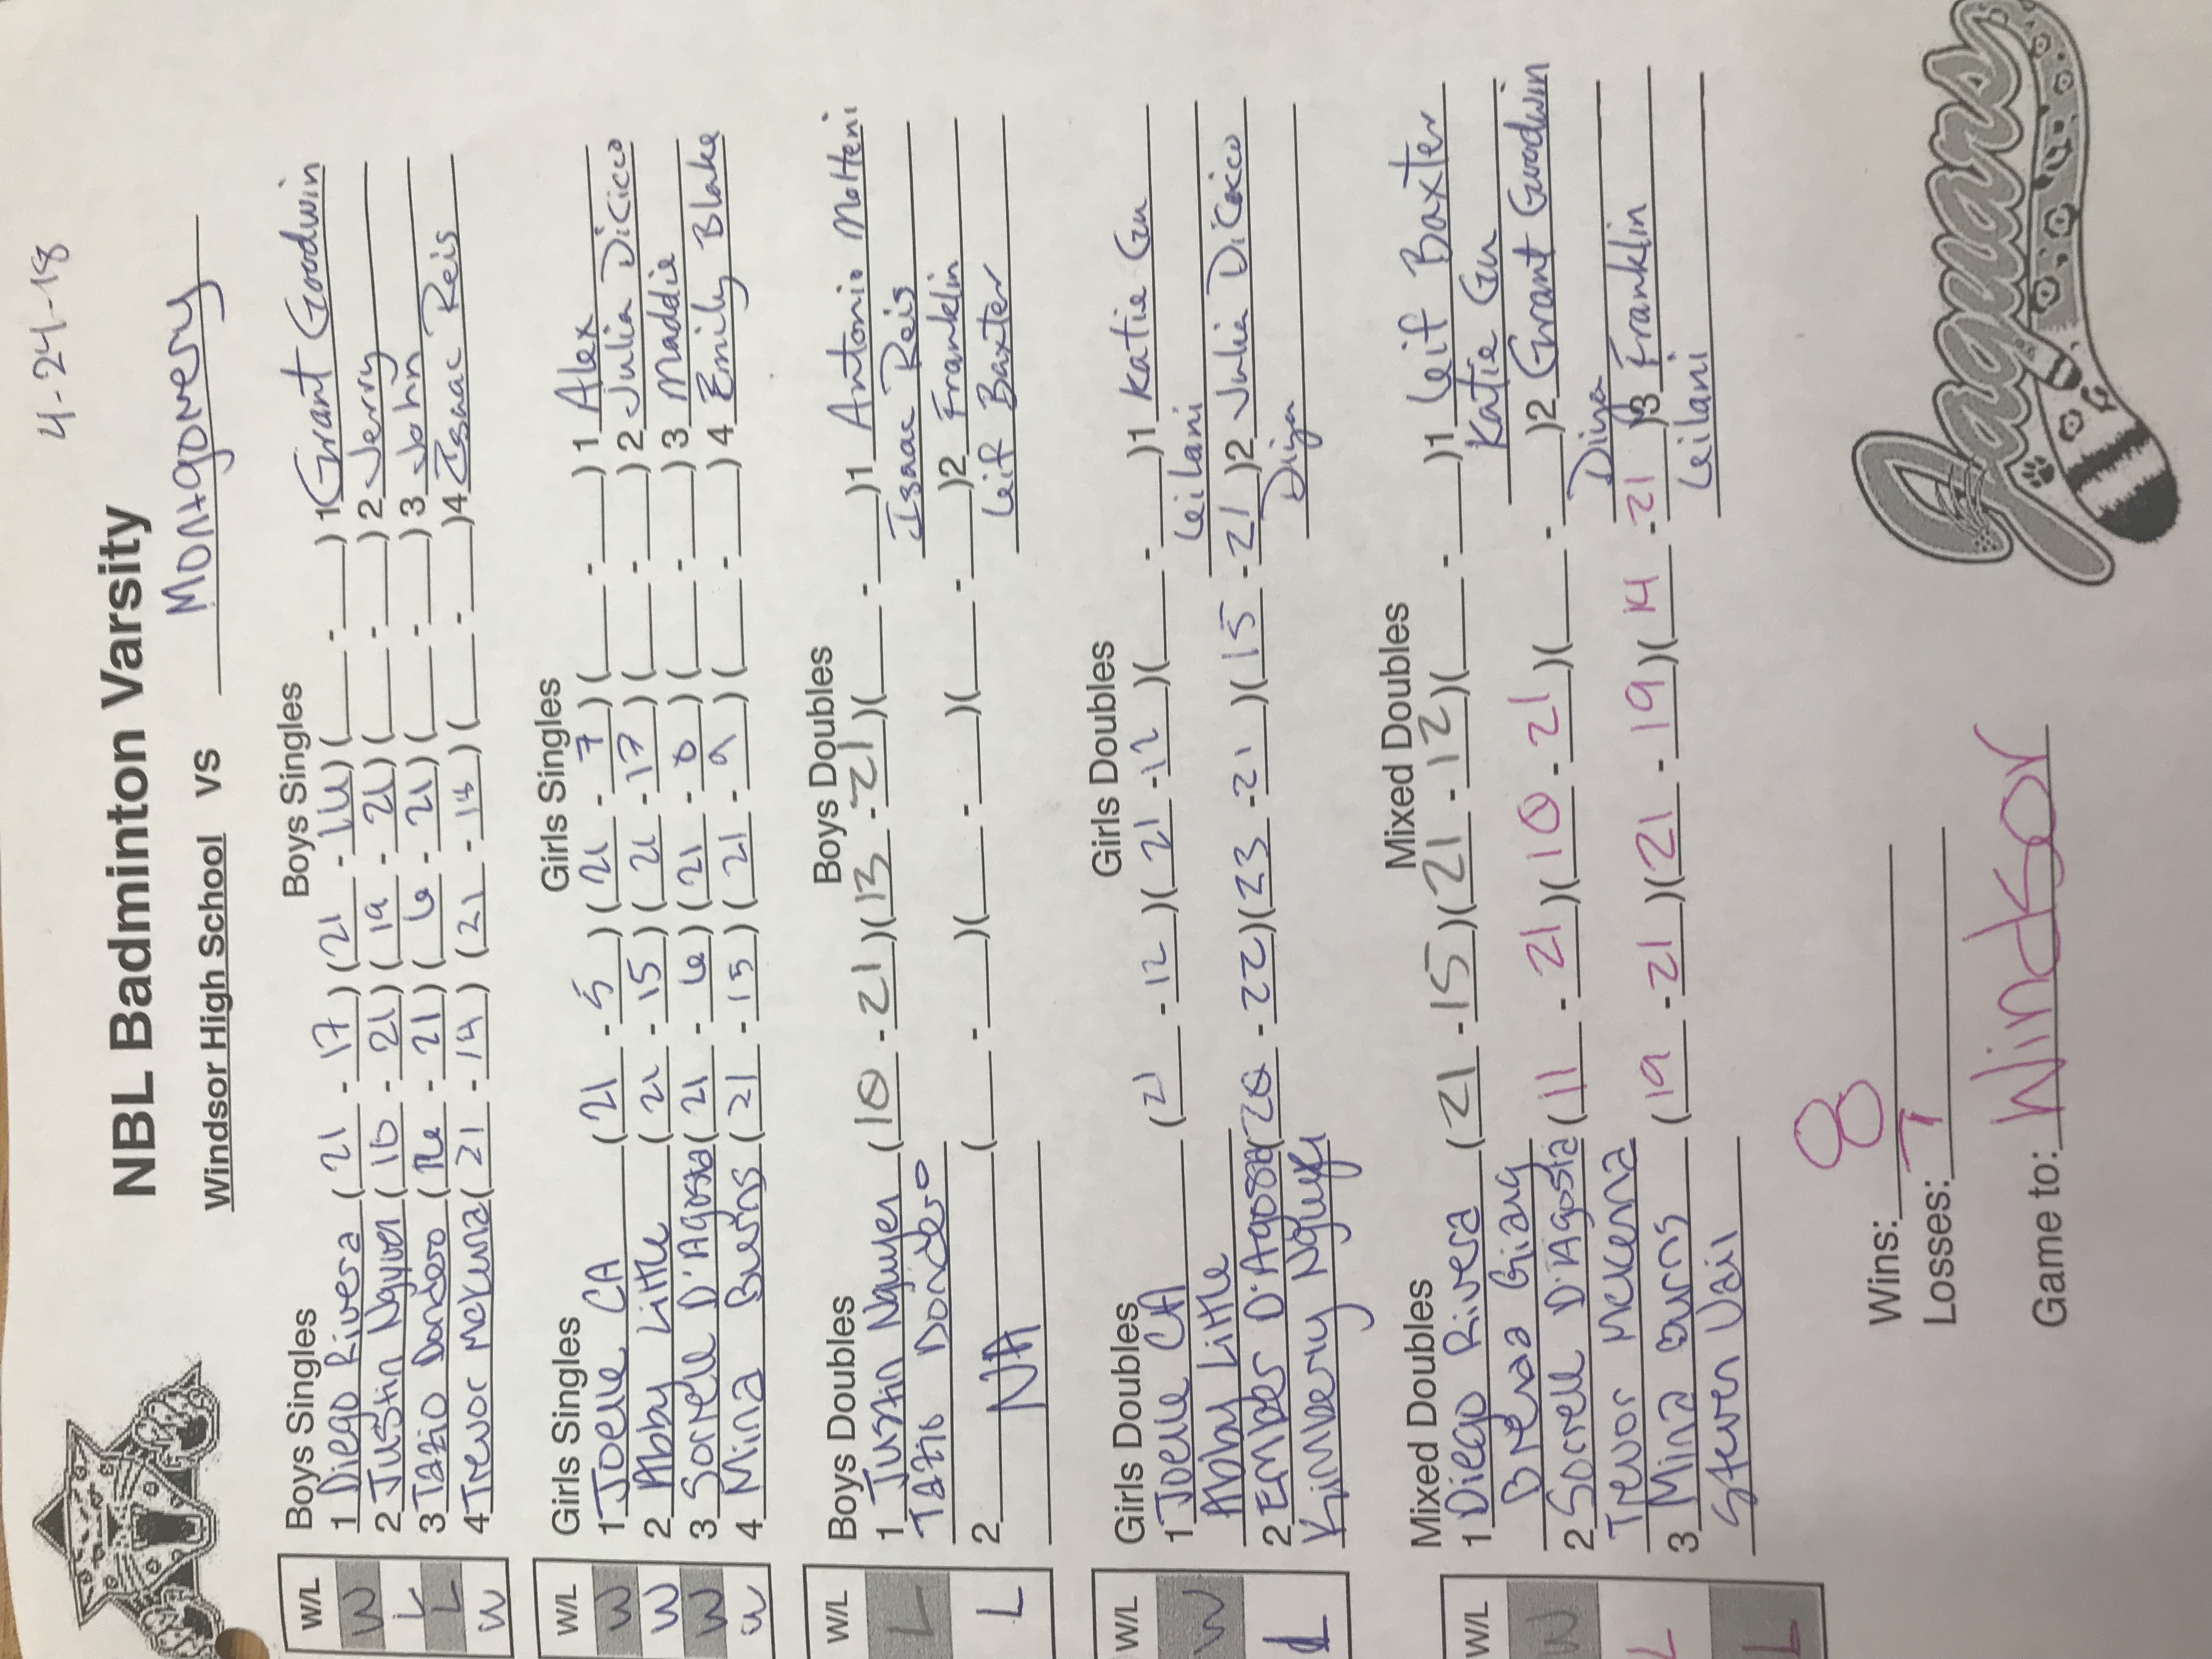 4-24-18
NBL Badminton Varsity
Windsor High School vs Montgomery
Boys Singles Boys Singles
W/L
W 1 Diego Rivera (21 - 17) (21 - 14) (___-___) 1 Grant Goodwin
L 2 Justin Nguyen (10 - 21) (19 - 21) (___-___) 2 Jerry
L 3 Tazio Dondero ( - 21) (6 - 21) (___-___) 3 John
W 4 Trevor McKenna (21 - 14) (21 - 18) (___-___) 4 Isaac Reis
Girls Singles Girls Singles
W/L
W 1 Joelle CA (21 - 5) (21 - 7) (___-___) 1 Alex
W 2 Abby Little (21 - 15) (21 - 17) (___-___) 2 Julia Dicicco
W 3 Sorrell D'Agosta (21 - 6) (21 - 8) (___-___) 3 Maddie
W 4 Mina Burns (21 - 15) (21 - 9) (___-___) 4 Emily Blake
Boys Doubles Boys Doubles
W/L
L 1 Justin Nguyen (10 - 21) (13 - 21) (___-___) 1 Antonio Molteni
Tazio Dondero Isaac Reis
L 2 NA (___-___) (___-___) (___-___) 2 Franklin
Leif Baxter
Girls Doubles Girls Doubles
W/L
W 1 Joelle CA (21 - 12) (21 - 12) (___-___) 1 Katie Gu
Abby Little Leilani
L 2 Ember D'Agosta (20 - 22) (23 - 21) (15 - 21) 2 Julia DiCicco
Kimberly Nguyen Diya
Mixed Doubles Mixed Doubles
W/L
W 1 Diego Rivera (21 - 15) (21 - 12) (___-___) 1 Leif Baxter
Brenda Giang Katie Gu
L 2 Sorrell D'Agosta (11 - 21) (10 - 21) (___-___) 2 Grant Goodwin
Trevor McKenna Diya
L 3 Mina Burns (19 - 21) (21 - 19) (14 - 21) 3 Franklin
Steven Vail Leilani
Wins: 8
Losses: 7
Game to: Windsor
Jaguars